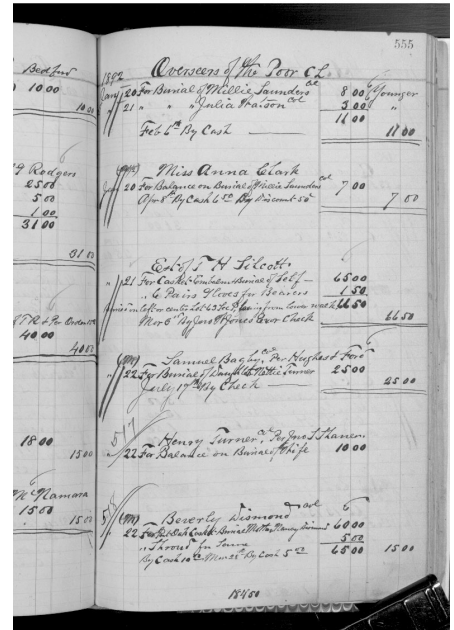 Bedford
10 00
10 00
Rodgers
25 00
5 00
1 00
31 00
31 00
40 00
40 00
18 00
15 00
McNamara
15 00
15 00
555
1892 Overseers of the Poor C L
Jany 20 For Burial of Millie Saunders col 8 00 Younger
" 21 " " " Julia Watson col 3 00 "
11 00
Feb 6th By Cash 11 00
Miss Anna Clark
Jan 20 For Balance on Burial of Millie Saunders col 7 00
Apr 8th By Cash 6 50 By Discount 50 7 00
Est of T H Silcott
" 21 For Casket Embalmt & Burial of Self 65 00
" 6 Pairs Gloves for Bearers 1 50
66 50
Mar 8th By Check 66 50
Samuel Bagby, col Per Hughes & Ford
22 For Burial of Daughter Nettie Turner 25 00
July 19th By Check 25 00
517 Henry Turner, col Per Jno T Shaner
22 For Balance on Burial of Wife 10 00
518 Beverly Dismond col
22 For Casket & Burial Mother Nancy Dismond 60 00
" Shroud for Same 5 00
By Cash 10 00 Mar 25th By Cash 5 00 65 00 15 00
184 50